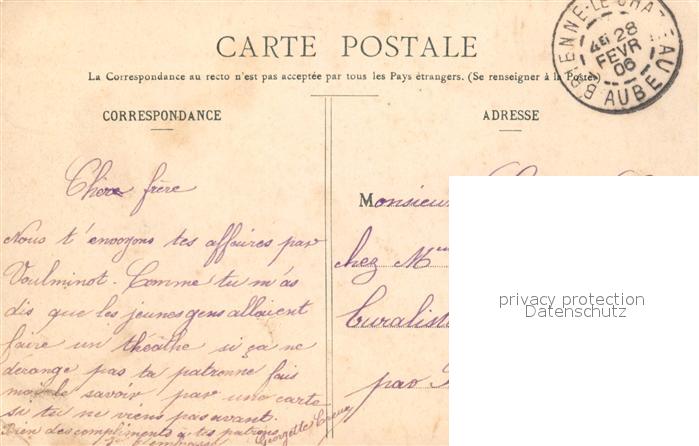 BRIENNE-LE-CHATEAU
28
FEVR
06
AUBE
CARTE POSTALE
La Correspondance au recto n'est pas acceptée par tous les Pays étrangers. (Se renseigner à la Poste)
CORRESPONDANCE
ADRESSE
Chère frère
Nous t'envoyons tes affaires par
Voulminot. Comme tu m'as
dis que les jeunes gens allaient
faire un théâthe si ça ne
dérange pas ta patronne fais
moi le savoir par une carte
si tu ne viens pas avant.
Bien des compliments à tes patrons
Georgette
Monsieur
chez Mme
buraliste
par
privacy protection
Datenschutz